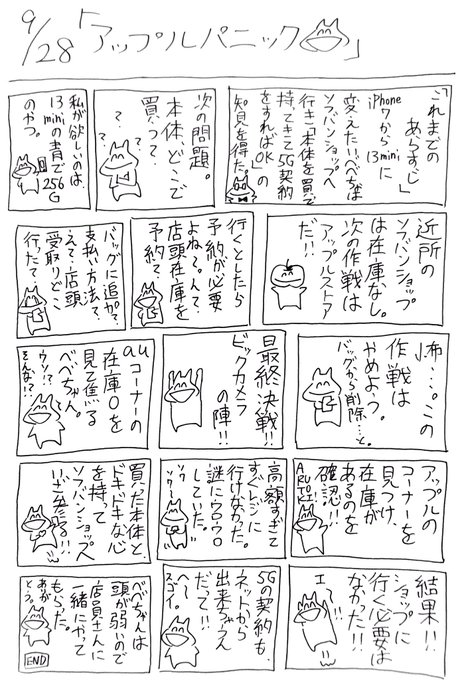 9/28「アップルパニック」
「これまでの
あらすじ」
iPhone
7から13miniに
変えたいべべちゃんは
ソフバンショップへ
行き「本体を買って
持ってきて5G契約
をすればOK」の
知見を得た。
次の問題。
本体、どこで
買う?
?
?
?
私が欲しいのは
13miniの青で256
G
のやつ。
近所の
ソフバンショップ
は在庫なし。
次の作戦は
アップルストア
だ!!
行くとしたら
予約が必要
よね。んで、
店頭在庫を
予約て、
バッグに追加て?
支払い方法て、
えて、店頭
受取りどこ
行ったて
怖…。この
作戦は
やめよう。
バッグから削除…と。
最終決戦!!
ビックカメラ
の陣!!
auコーナーの
在庫0を
見て焦る
べべちゃん。
ウソ!?
そんな!?
アップルの
コーナーを
見つけ、
在庫が
あるのを
確認!!
ARUTO!!
高額すぎて
すぐレジに
行けなかった。
謎にウロウロ
していた。
ソワ
ソワ
買った本体と
ドキドキな心
を持って
ソフバンショップへ
いざ参る!!
結果!!
ショップに
行く必要は
なかった!!
エー!!
5Gの契約も
ネットから
出来ちゃうん
だって!!
へ〜
スゴイ。
べべちゃんは
頭が弱いので
店員さんに
一緒にやって
もらった。
ありが
とう。
END